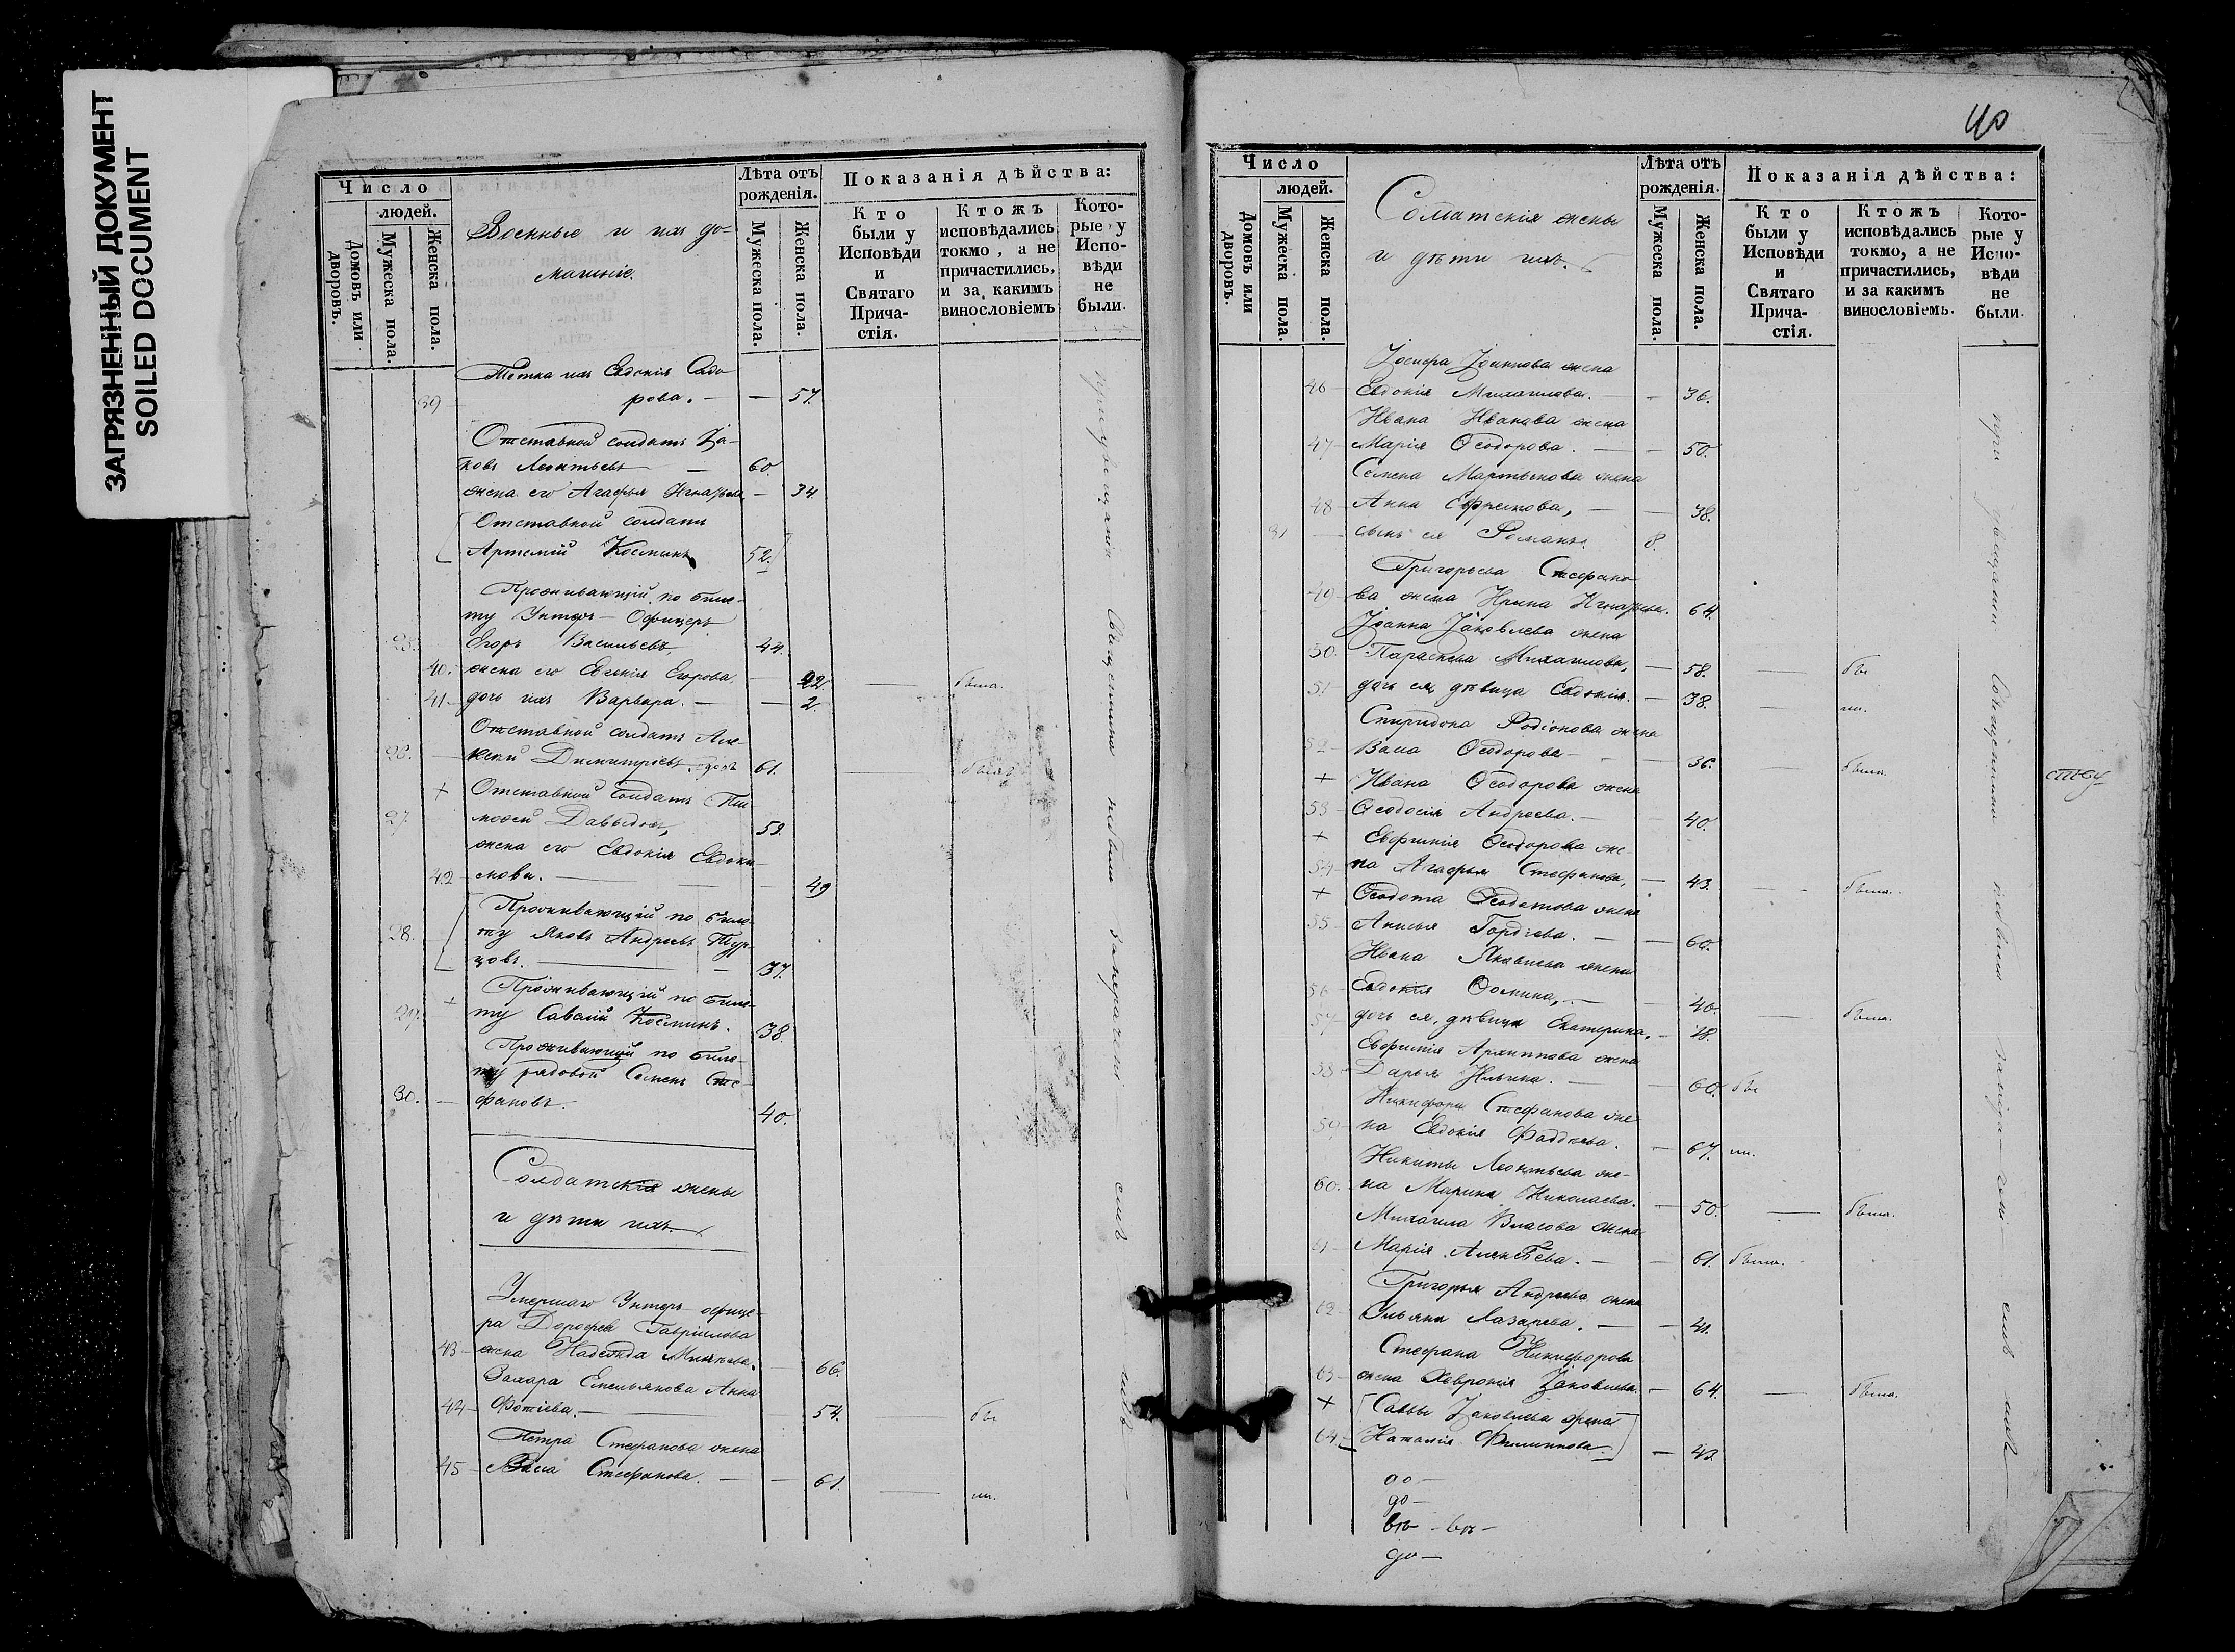 ЗАГРЯЗНЕННЫЙ ДОКУМЕНТ
SOILED DOCUMENT
Число
людей.
Домовъ или дворовъ.
Мужеска пола.
Женска пола.
Военные и ихъ до=
машніе.
Лѣта отъ рожденія.
Мужеска пола.
Женска пола.
Показанія дѣйства:
Кто были у Исповѣди и Святаго Прича-стія.
Ктожъ исповѣдались токмо, а не причастились, и за какимъ винословіемъ
Кото-рые у Испо-вѣди не были.
Тетка ихъ Евдокія Сидо
39 рова. — — 57.
Отставной солдатъ Іа-
ковъ Леонтьевъ — 60.
жена его Агафья Игнатьева — 34
Отставной солдатъ
Артемій Косминъ 52.
Проживающій по биле-
ту Унтеръ-Офицеръ
25. Егоръ Васильевъ, 44.
40. жена его Евгенія Егорова. 22. — была.
41 — дочь ихъ Варвара. — — 2.
Отставной солдатъ Але-
26. ксѣй Димитріевъ 61. —
+ Отставной солдатъ Ти-
27. мофей Давыдовъ, 59.
жена его Евдокія Евдоки-
42 мова. — 49
Проживающій по биле-
28. ту Яковъ Андреевъ Тур-
цовъ. — 37.
+ Проживающій по биле-
29. ту Савелій Косминъ. 38.
Проживающій по биле-
ту рядовой Семенъ Сте-
30. — фановъ. 40.
Солдатскія жены
и дѣти ихъ.
Умершаго Унтеръ-офице-
ра Дорофея Гавріилова
43 — жена Надежда 66.
Захара Емельянова Анна
44 — Фотіева. — 54. — бы
Петра Стефанова жена
45 — Васа Стефанова. — — 61. — ла.
40
Число
людей.
Домовъ или дворовъ.
Мужеска пола.
Женска пола.
Солдатскія жены
и дѣти ихъ.
Лѣта отъ рожденія.
Мужеска пола.
Женска пола.
Показанія дѣйства:
Кто были у Исповѣди и Святаго Прича-стія.
Ктожъ исповѣдались токмо, а не причастились, и за какимъ винословіемъ.
Кото-рые у Испо-вѣди не были.
Іосифа Іоаннова жена
46 — Евдокія Михаилова. — — 36.
Ивана Иванова жена
47 — Марія Ѳеодорова. — — 50.
Семена Мартынова жена
48 — Анна Ефимова, — — 38.
31 — сынъ ея Романъ. 8.
Григорьева Стефано
49 — ва жена Ирина Игнатьева. 64.
Іоанна Іаковлева жена
50. Параскева Михаилова, — 58. — бы
51 — дочь ея, дѣвица Евдокія. — 38. — ли.
Спиридона Родіонова жена
52 — Васа Ѳеодорова — — 36. — была.
+ Ивана Ѳеодорова жена
53 — Ѳеодосія Андреева. — 40.
+ Евфимія Ѳеодорова же-
54 — на Агафья Стефанова, — 43. — была.
+ Ѳеодота Ѳеодотова жена
55 — Анисья Гордѣева. — — 60.
Ивана Яковлева жена
56 — Евдокія Ѳомина, — 40. — была.
57 — дочь ея, дѣвица Екатерина, — 18.
Евфимія Архиппова жена
58 — Дарья Ильина. — 60. бы
Никифора Стефанова же
59 — на Евдокія Фаддѣева. — 67. ли.
Никиты Леонтьева же-
60. на Марина Николаева. — 50. — была.
Михаила Власова жена
61 — Марія Алексѣева. — — 61. была.
Григорья Андреева жена
62 — Ульяна Лазарева. — — 41.
Стефана Никифорова
63 — жена Хевронія Іаковлева. — 64. — была.
+ Саввы Іаковлева жена
64 — Наталія Филиппова. — 42.
до —
до —
въ — въ —
до —